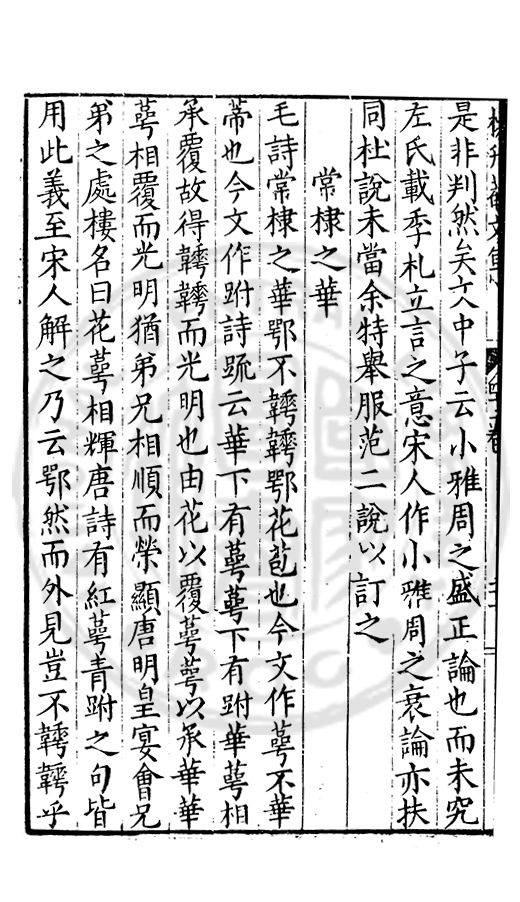 是非判然矣文中子云小雅周之盛正論也而未究
左氏載季札立言之意宋人作小雅周之衰論亦扶
同杜說未當余特舉服范二說以訂之
常棣之華
毛詩常棣之華鄂不韡韡鄂花苞也今文作萼不華
蒂也今文作跗詩疏云華下有萼萼下有跗華萼相
承覆故得韡韡而光明也由花以覆萼萼以承華華
萼相覆而光明猶弟兄相順而榮顯唐明皇宴會兄
弟之處樓名曰花萼相輝唐詩有紅萼青跗之句皆
用此義至宋人解之乃云鄂然而外見豈不韡韡乎